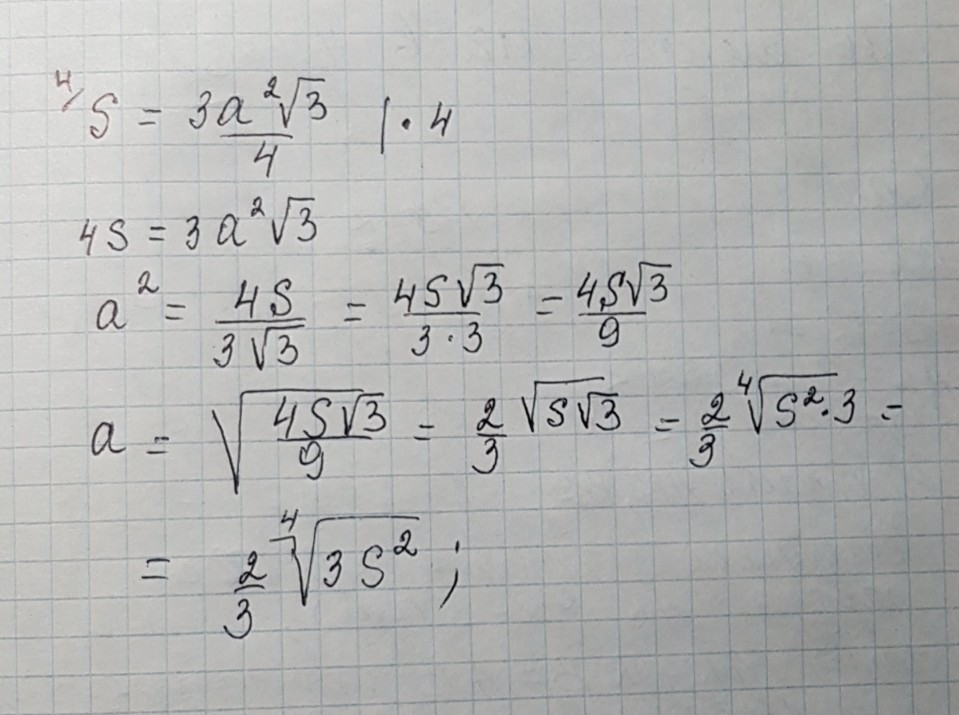 4/ S = 3a²√3 / 4 | · 4
4S = 3a²√3
a² = 4S / 3√3 = 4S√3 / 3·3 = 4S√3 / 9
a = √(4S√3 / 9) = 2/3 √(S√3) = 2/3 ⁴√(S²·3) =
= 2/3 ⁴√(3S²) ;